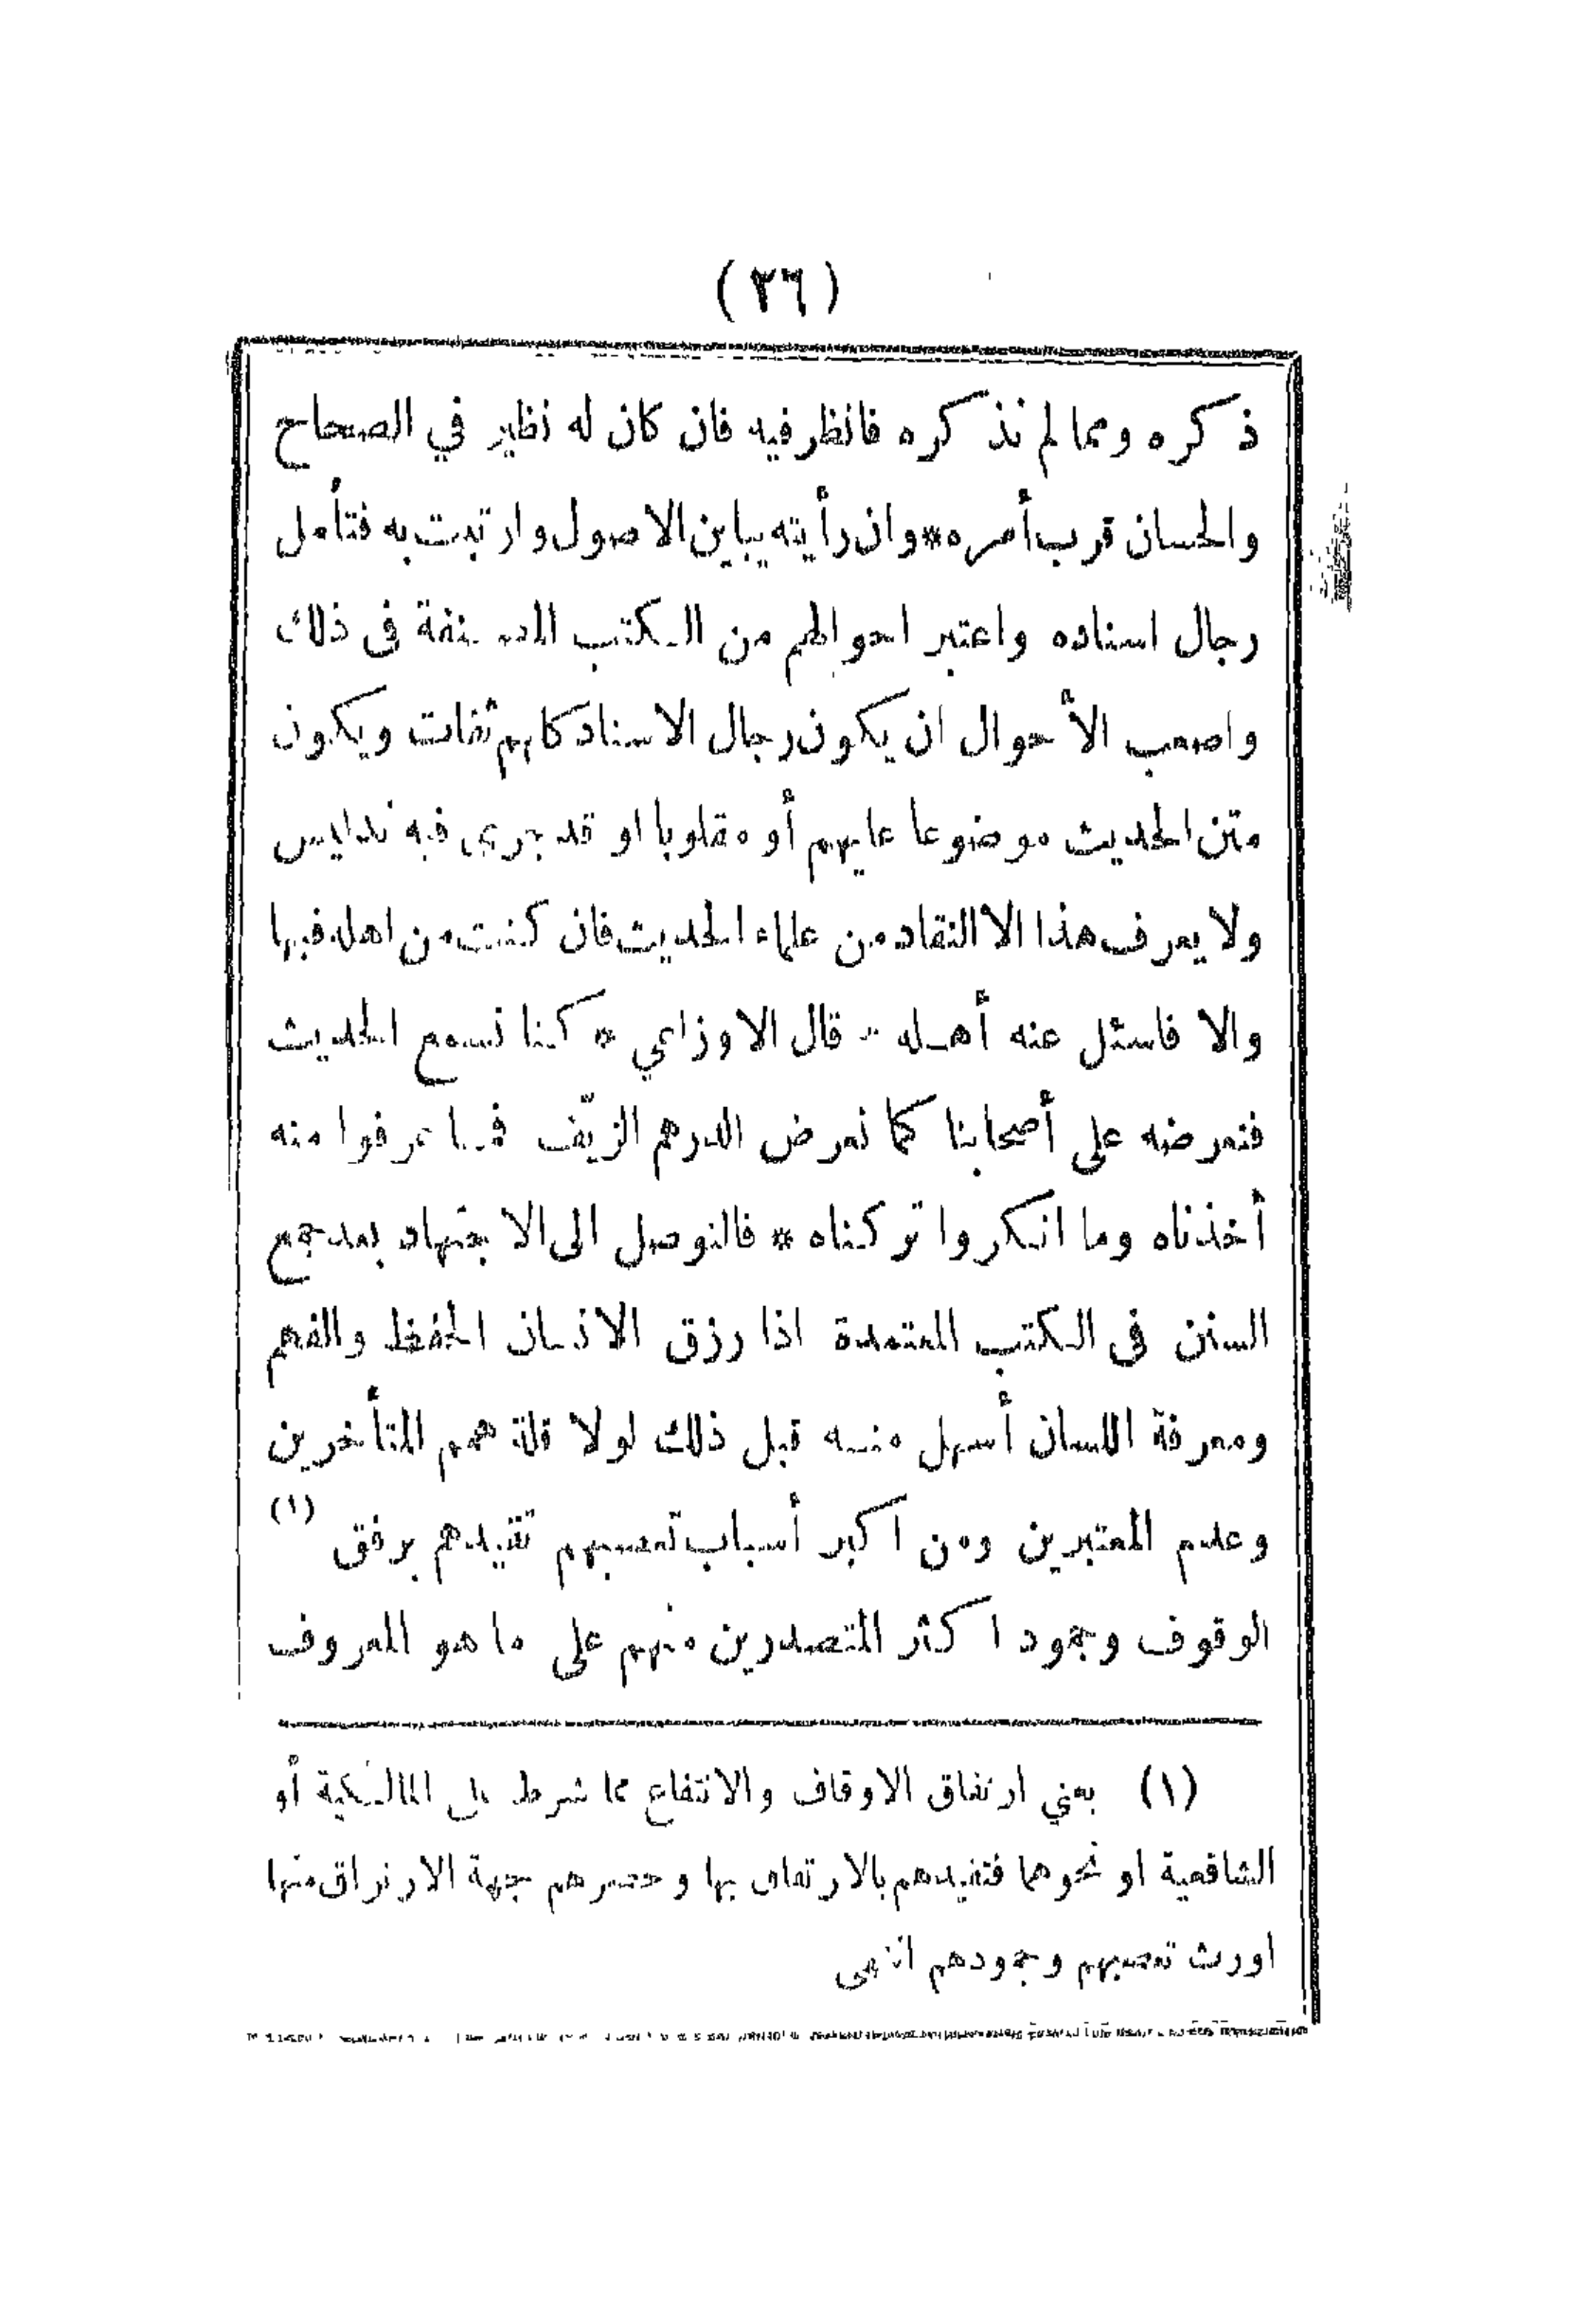 (٣٦)
ذكره ومما لم نذكره فانظر فيه فان كان له نظير في الصحاح
والحسان قرب أمره * وان رأيته يباين الاصول وارتبت به فتأمل
رجال اسناده واعتبر احوالهم من الكتب المصنفة فى ذلك
واصعب الأحوال ان يكون رجال الاسناد كلهم ثقات ويكون
متن الحديث موضوعا عليهم أو مقلوبا او قد جرى فيه تدليس
ولا يعرف هذا الا النقاد من علماء الحديث فان كنت من اهله فبها
والا فاسئل عنه أهله * قال الاوزاعي * كنا نسمع الحديث
فنعرضه على أصحابنا كما نعرض الدرهم الزيّف فما عرفوا منه
أخذناه وما انكروا تركناه * فالتوصل الى الاجتهاد بعد جمع
السنن فى الكتب المعتمدة اذا رزق الانسان الحفظ والفهم
ومعرفة اللسان أسهل منه قبل ذلك لولا قلة همم المتأخرين
وعدم المعتبرين ومن اكبر أسباب تعصبهم تقيدهم برفق (١)
الوقوف وجمود اكثر المتصدرين منهم على ما هو المعروف
(١) يعني ارتفاق الاوقاف والانتفاع مما شرط على المالكية أو
الشافعية او نحوهما فتقيدهم بالارتفاق بها وحصرهم جهة الارتزاق منها
اورث تعصبهم وجمودهم انتهى